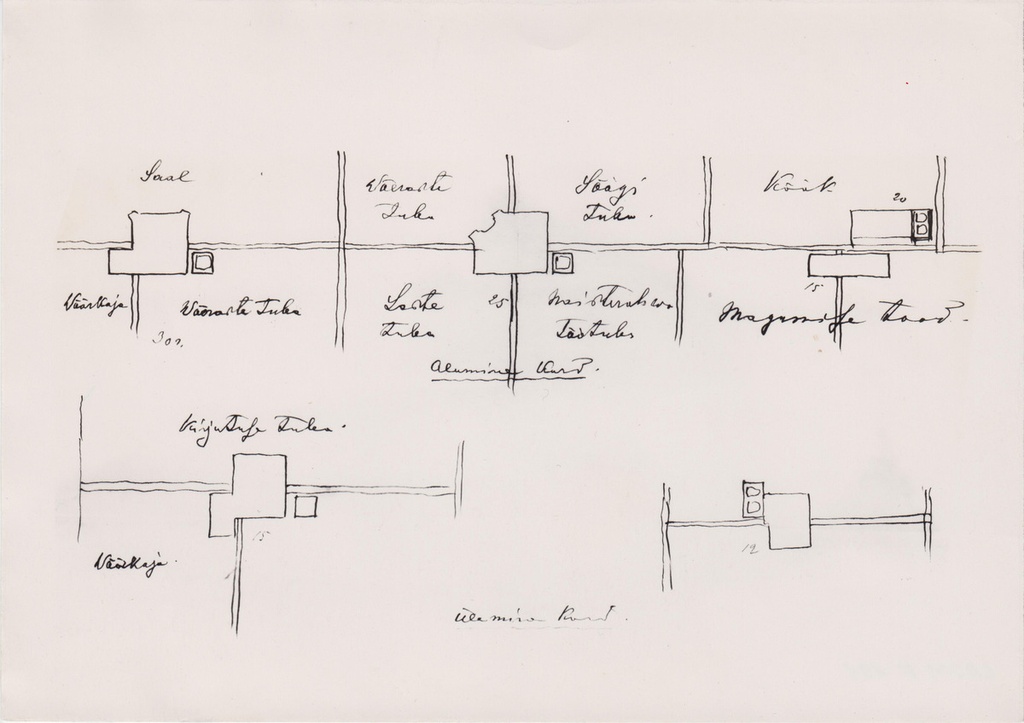 Saal
Võeraste
Tuba
Söögi
Tuba.
Köök
20
Võõrkaja
Võeraste Tuba
30 r.
Laste
tuba
25
Naisterahwa
Töötuba
15
Magamise toad.
Alumine Kord.
Kirjutuse tuba.
15
Võõrkaja.
12
Ülemine Kord.